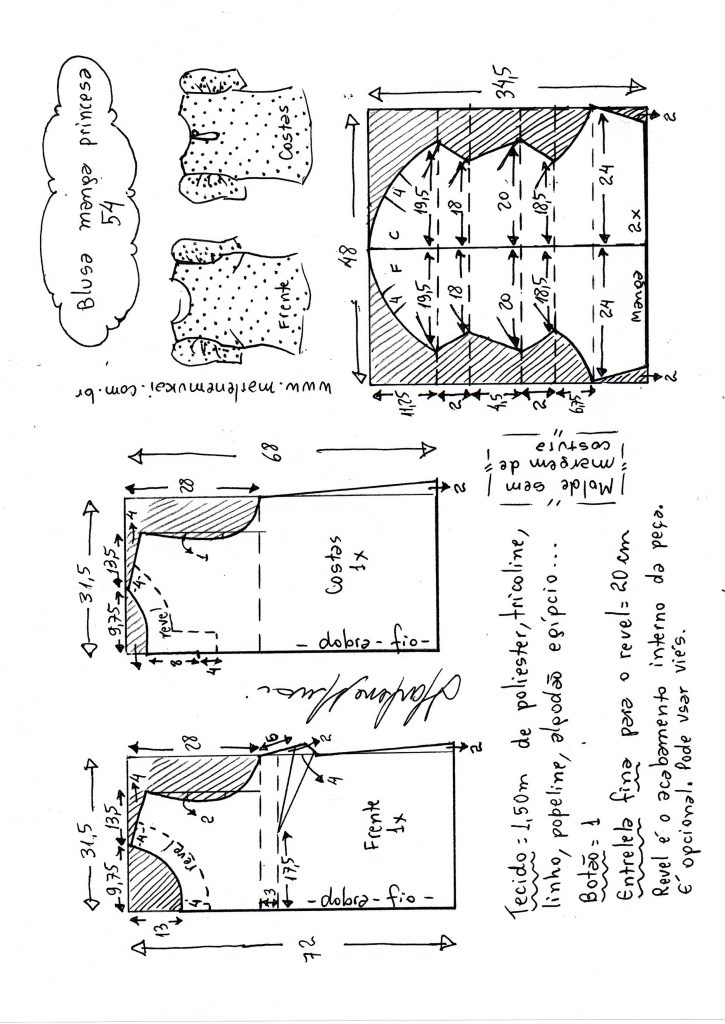 Blusa manga princesa
54
Frente
Costas
www.marlenemukai.com.br
72
13
31,5
9,75
13,5
4
4
4
revel
2
28
6
2
4
3
17,5
Frente
1x
-dobra-fio-
2
31,5
9,75
13,5
4
4
revel
1
8
4
28
68
Costas
1x
-dobra-fio-
2
Molde sem
margem de
costura
48
34,5
4
F
C
4
19,5
19,5
18
18
20
20
18,5
18,5
24
24
11,25
2
4,5
2
6,75
Manga
2x
2
2
Tecido = 1,50m de poliester, tricoline,
linho, popeline, algodão egípcio...
Botão = 1
Entretela fina para o revel = 20 cm
Revel é o acabamento interno da peça.
É opcional. Pode usar viés.